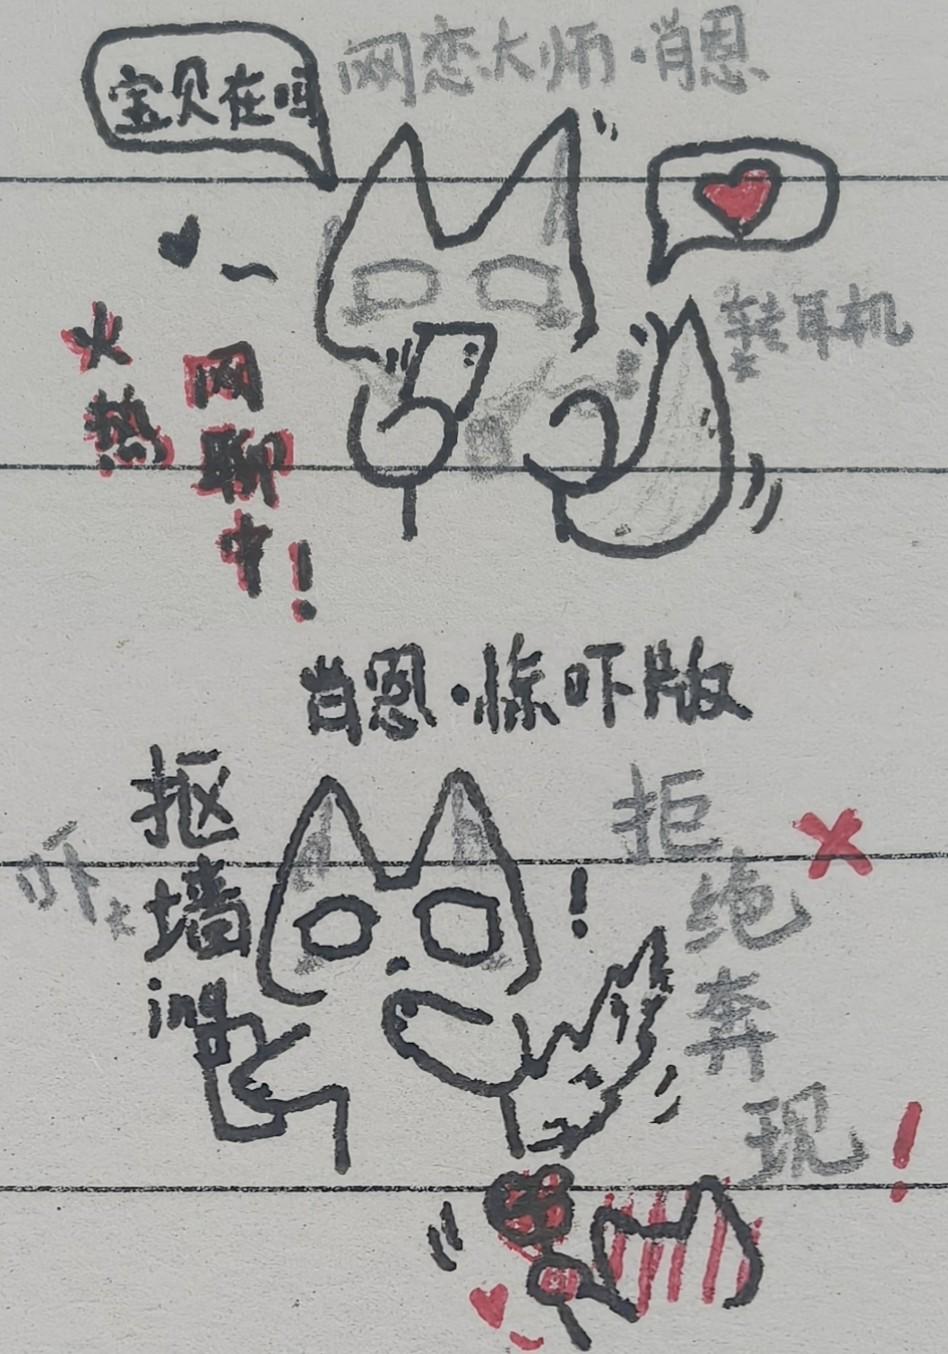 网恋大师·肖恩
宝贝在吗
转耳机
火热
网聊中!
肖恩·惊吓版
抠墙ing
吓
拒绝奔现!